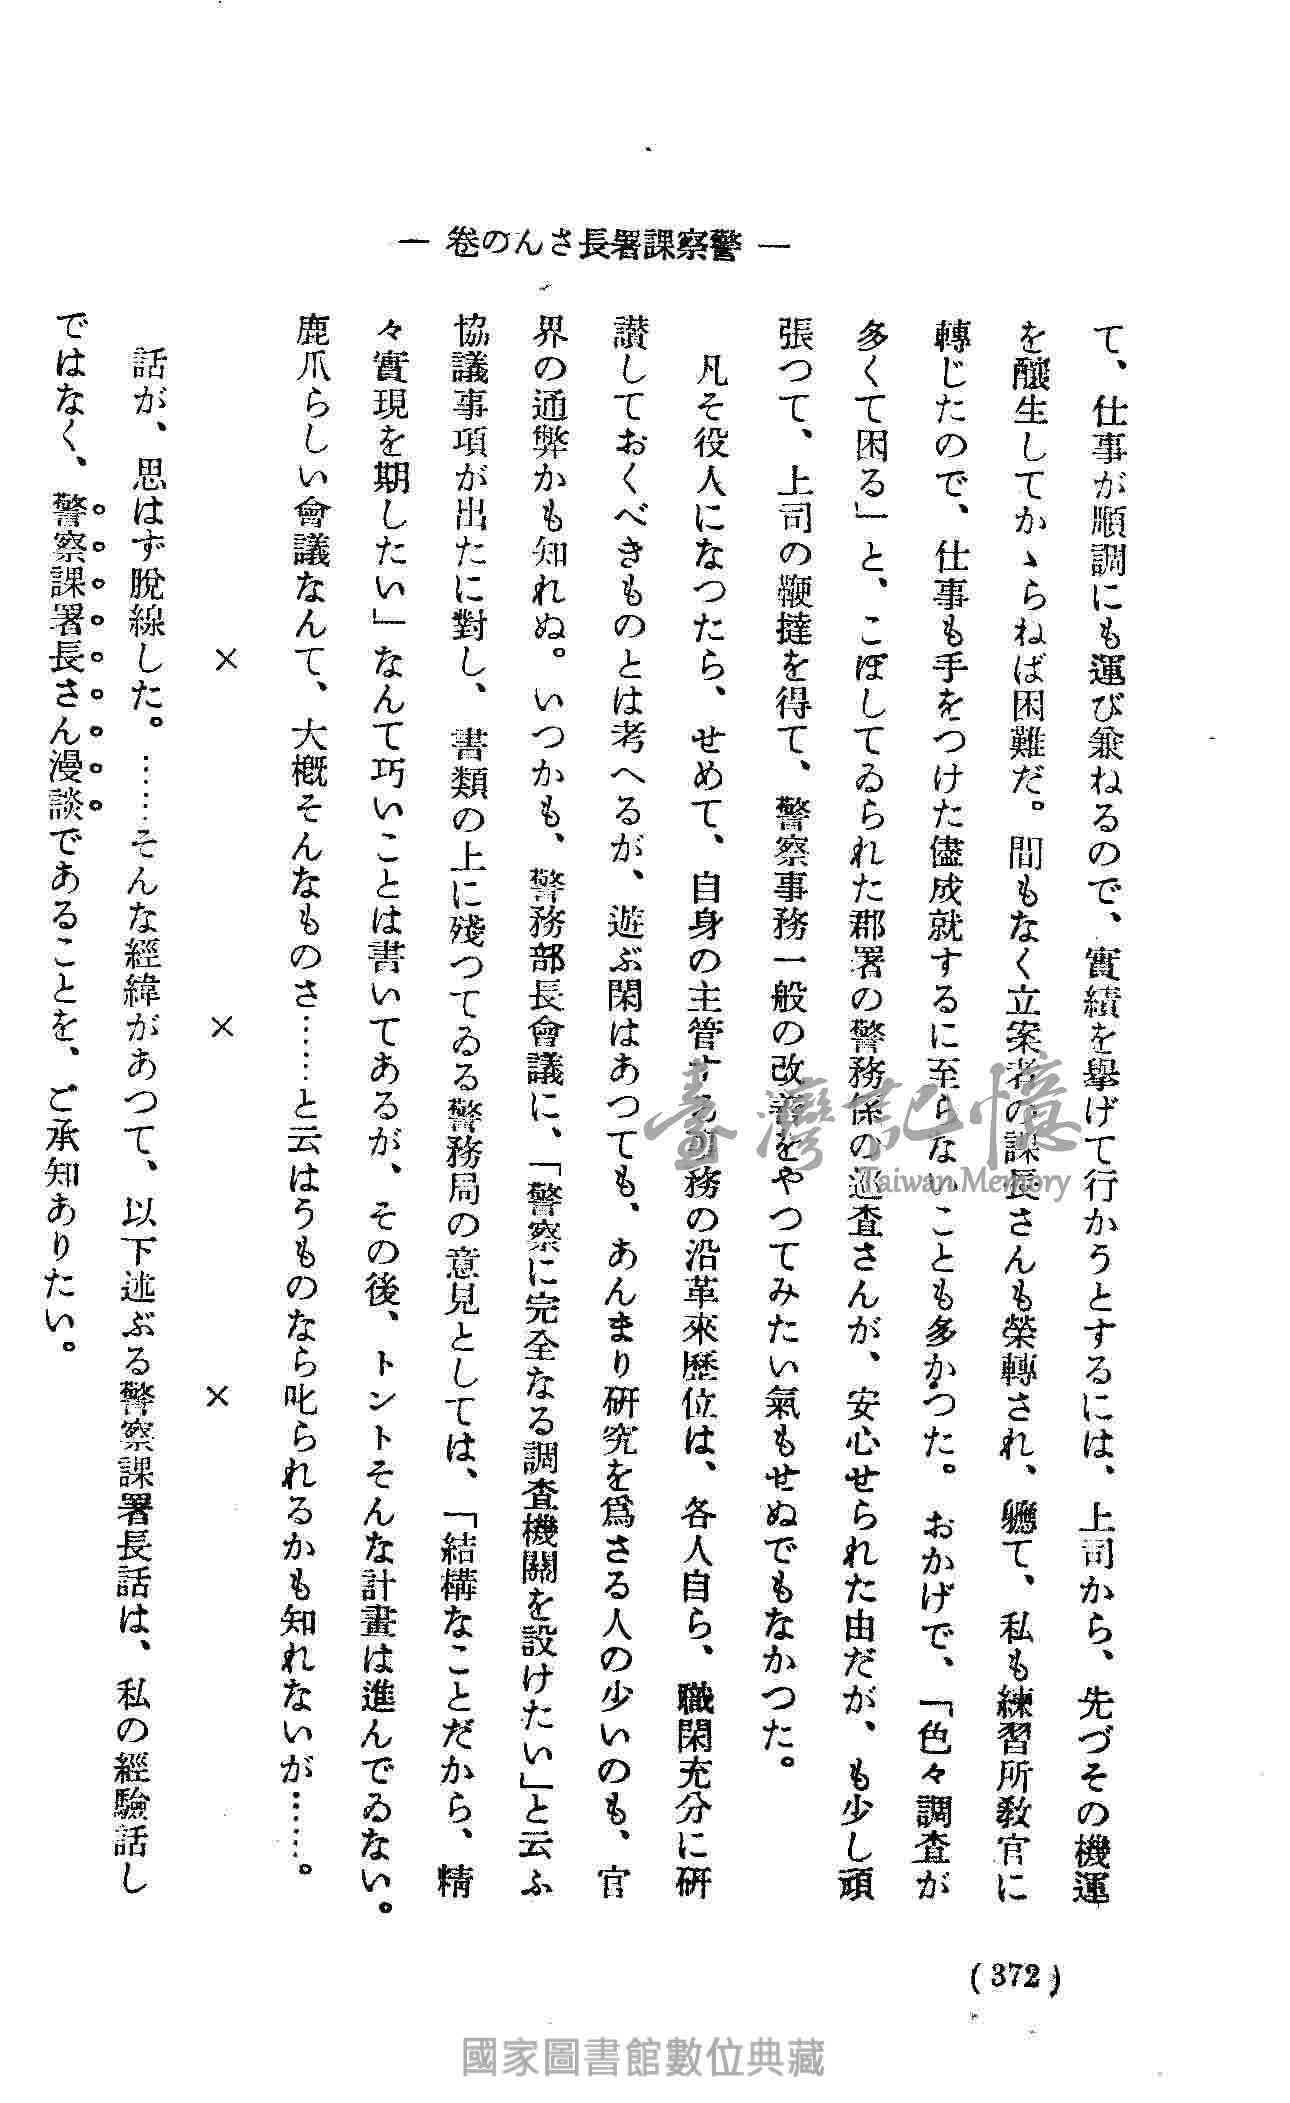 ― 警察課署長さんの卷 ―
て、仕事が順調にも運び兼ねるので、實績を擧げて行かうとするには、上司から、先づその機運
を釀生してかゝらねば困難だ。間もなく立案者の課長さんも榮轉され、軈て、私も練習所敎官に
轉じたので、仕事も手をつけた儘成就するに至らないことも多かつた。おかげで、「色々調査が
多くて困る」と、こぼしてゐられた郡署の警務係の巡査さんが、安心せられた由だが、も少し頑
張つて、上司の鞭撻を得て、警察事務一般の改善をやつてみたい氣もせぬでもなかつた。
凡そ役人になつたら、せめて、自身の主管する事務の沿革來歷位は、各人自ら、職閑充分に硏
讃しておくべきものとは考へるが、遊ぶ閑はあつても、あんまり硏究を爲さる人の少いのも、官
界の通弊かも知れぬ。いつかも、警務部長會議に、「警察に完全なる調査機關を設けたい」と云ふ
協議事項が出たに對し、書類の上に殘つてゐる警務局の意見としては、「結構なことだから、精
々實現を期したい」なんて巧いことは書いてあるが、その後、トントそんな計畫は進んでゐない。
鹿爪らしい會議なんて、大槪そんなものさ……と云はうものなら叱られるかも知れないが……。
× × ×
話が、思はず脫線した。……そんな經緯があつて、以下述ぶる警察課署長話は、私の經驗話し
ではなく、警察課署長さん漫談であることを、ご承知ありたい。
(372)
臺灣記憶
Taiwan Memory
國家圖書館數位典藏